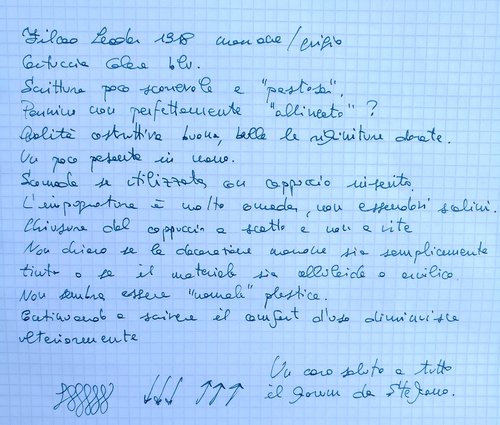 Filcao Leader 1978 marrone/grigio
Cartuccia colore blu.
Scrittura poco scorrevole e "pastosa".
Pennino non perfettamente "allineato"?
Qualità costruttiva buona, belle le rifiniture dorate.
Un poco pesante in mano.
Scomoda se utilizzata con cappuccio inserito.
L'impugnatura è molto comoda, non essendovi scalini.
Chiusura del cappuccio a scatto e non a vite
Non chiaro se la decorazione marrone sia semplicemente
tinta o se il materiale sia celluloide o acrilico.
Non sembra essere "normale" plastica.
Continuando a scrivere il comfort d'uso diminuisce
ulteriormente
Un caro saluto a tutto
il forum da Stefano.